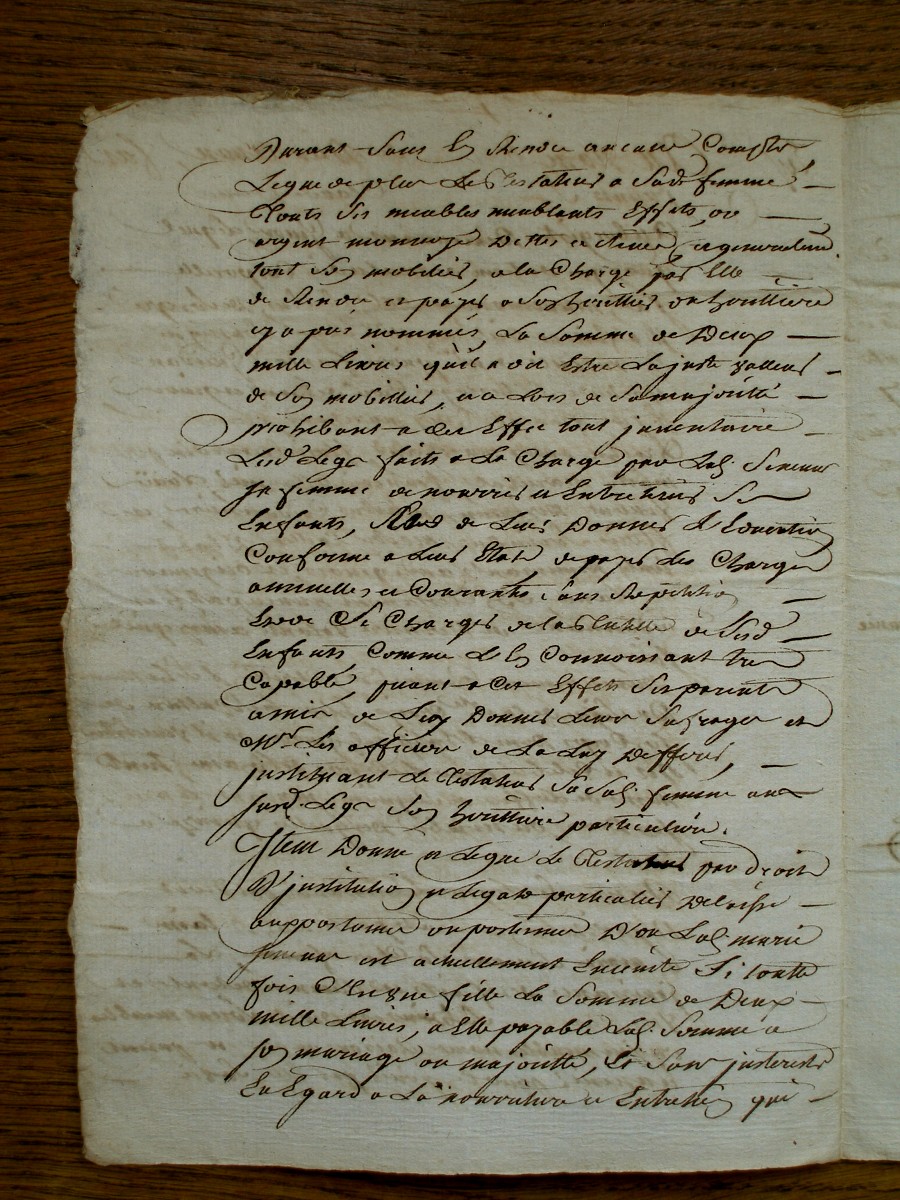 Durant Sans En Rendre aucune Compte
Legue de plus Le Testateur a Sad. femme
touts Ses meubles meublants Effets, or
argent monnoye Dettes et generalement
tout Son mobilier, a la Charge par Elle
de Rendre et payer a Son heritier ou heritiere
cy apres nommés, La Somme de Deux
mille Livres qu'il a dit Estre La juste valleur
de Son mobilier, et a Lors de Sa majorité
prohibant a cet Effet tout inventaire
Lesd. Legs faits a La Charge par Lad.
Sa femme de nourrir et Entretenir Ses
Enfants, de Leur Donner L'Education
Conforme a Leur Etat, de payer Les Charges
annuelles et Courantes Sans Repetition
Et de Se Charger de la Tutelle de Sesd.
Enfants, Comme L'En Connoissant tres
Capable, priant a Cet Effet Ses parents
amis de Luy Donner Leurs Sufrages et
Mrs. Les officiers de La Luy Defferer,
instituant Le Testateur Sa Sad. femme aux
Susd. Legs Son heritiere particuliere.
Item Donne et Legue Le Testateur par droit
D'institution et Legat particulier
au postume ou postume D'ou Lad. marie
est actuellement Enceinte Si toutte
fois C'Est Une fille La Somme de Deux
mille Livres, a Elle payable Lad. Somme a
Son mariage ou majorité, Et Sans interests
En Egard a La nourriture et Entretien que